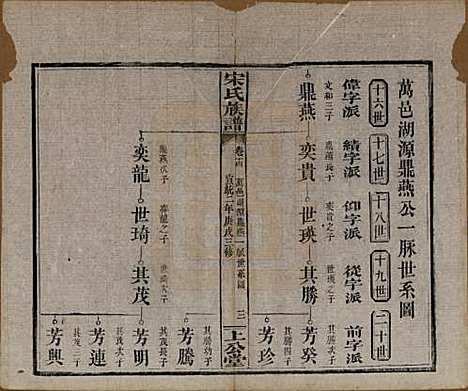 萬邑湖源鼎燕公一脉世系圖
十六世 十七世 十八世 十九世 二十世
偉字派 績字派 仰字派 從字派 前字派
文和三子 鼎燕長子 奕貴之子 世瑛之子
鼎燕 奕貴 世瑛 其勝 芳癸
其勝四子
芳珍
宋氏族譜
卷十六
宣統二年庚戌三修
三
上公堂
其勝幼子
芳騰
鼎燕次子 奕龍之子 世琦之子
奕龍 世琦 其茂 芳明
其茂次子
芳連
其茂三子
芳興